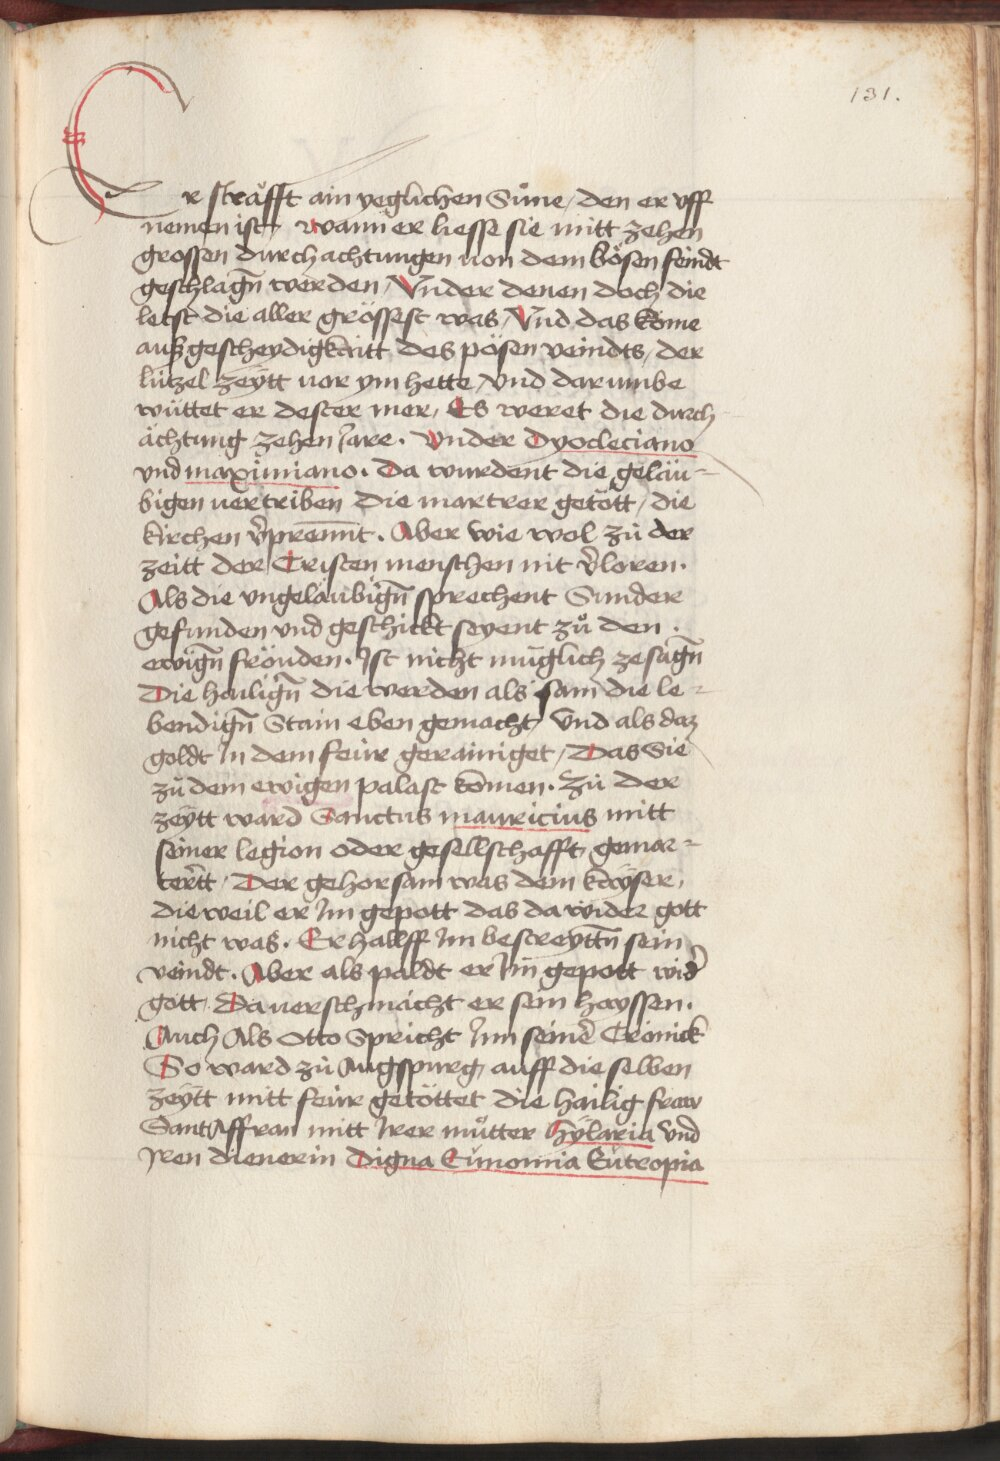 131.
Er sträfft ain yeglichen Sune / den er vff
nemen ist / wann er liesse sie mitt zehen
grossen durchachtungen von dem bösen feindt
geschlagn̄ werden / Vnder denen doch die
letst die aller grössest was / Vnd das kome
auß gescheydigkaitt des pösen veindts / der
lützel zeÿtt vor ym hette / vnd darumbe
wüttet er dester mer / Es weret die durch
ächtung zehen Jare . Vnder Dyocleciano
vnd maximiano . Da wurdent die geläu-
bigen vertriben die martrer getött / die
kirchen v̄prennt . Aber wie wol zů der
zeitt der Cristen menschen nit v̄loren .
Als die vngeläubign̄ sprechent Sunder
gefunden vnd geschickt seyent zů den .
ewign̄ fröuden . Ist nicht müglich zesagn̄
Die hailign̄ die werden als sam die le-
bendign̄ Stain eben gemacht / Vnd als daz
goldt In dem feür gerainiget / Das Sie
zů dem ewigen palast komen . Zů der
zeÿtt ward Sanctus mauricius mitt
seiner legion oder gesellschafft gemar-
tert̄t / Der gehorsam was dem kayser /
die weil er Im gepott das da wider gott
nicht was . Er hallff Im bestreÿttn̄ sein
veindt . Aber als paldt er Im gepott wid̄
gott / Da verschmächt er sein hayssen .
Auch Als Otto Spricht Inn seinē Cronick
So ward zů Augspurg auff die selben
zeÿtt mitt feür getöttet die hailig fraw
Sant Affran mitt Irer můtter Hÿlaria vnd
Iren dienerin Digna Eünomia Eütropia